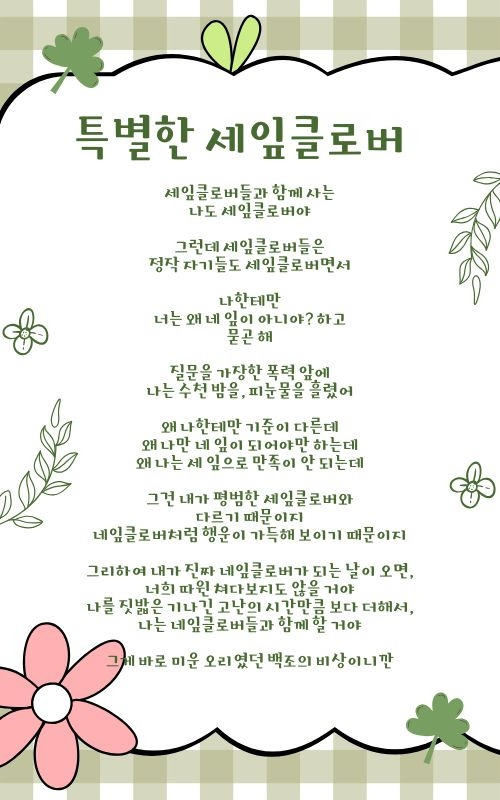 특별한 세잎클로버
세잎클로버들과 함께 사는
나도 세잎클로버야
그런데 세잎클로버들은
정작 자기들도 세잎클로버면서
나한테만
너는 왜 네 잎이 아니야? 하고
묻곤 해
질문을 가장한 폭력 앞에
나는 수천 밤을, 피눈물을 흘렸어
왜 나한테만 기준이 다른데
왜 나만 네 잎이 되어야만 하는데
왜 나는 세 잎으로 만족이 안 되는데
그건 내가 평범한 세잎클로버와
다르기 때문이지
네잎클로버처럼 행운이 가득해 보이기 때문이지
그리하여 내가 진짜 네잎클로버가 되는 날이 오면,
너희 따윈 쳐다보지도 않을 거야
나를 짓밟은 기나긴 고난의 시간만큼 보다 더해서,
나는 네잎클로버들과 함께 할 거야
그게 바로 미운 오리였던 백조의 비상이니깐